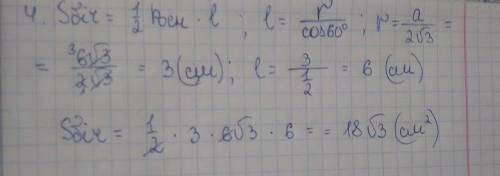 4. Sбіч = 1/2 Pосн · l ; l = r/cos60° ; r = a/2√3 =
= 6√3/2√3 = 3 (см); l = 3/(1/2) = 6 (см)
Sбіч = 1/2 · 3 · 6√3 · 6 = = 18√3 (см²)